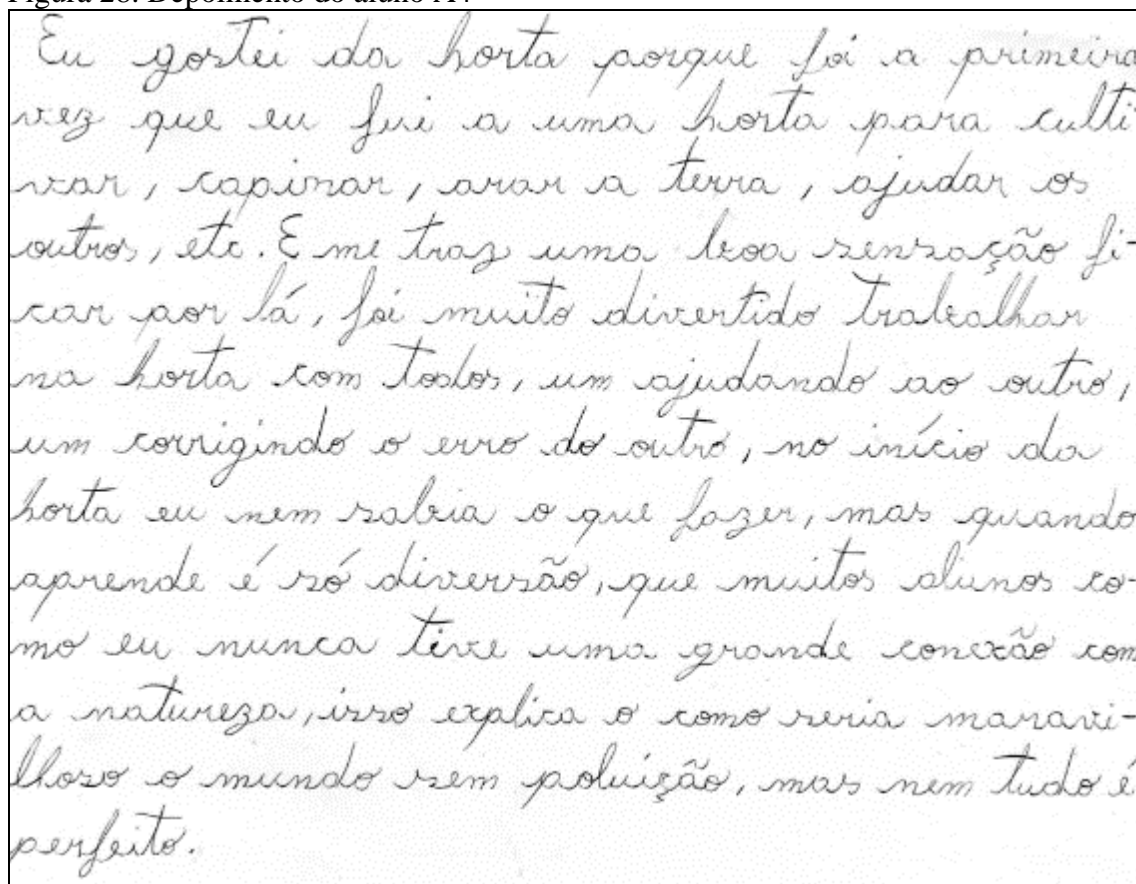 Eu gostei da horta porque foi a primeira
vez que eu fui a uma horta para culti
var, capinar, arar a terra, ajudar os
outros, etc. E me traz uma boa sensação fi-
car por lá, foi muito divertido trabalhar
na horta com todos, um ajudando ao outro,
um corrigindo o erro do outro, no início da
horta eu nem sabia o que fazer, mas quando
aprende é só diversão, que muitos alunos co-
mo eu nunca tive uma grande conexão com
a natureza, isso explica o como seria maravi-
lhoso o mundo sem poluição, mas nem tudo é
perfeito.